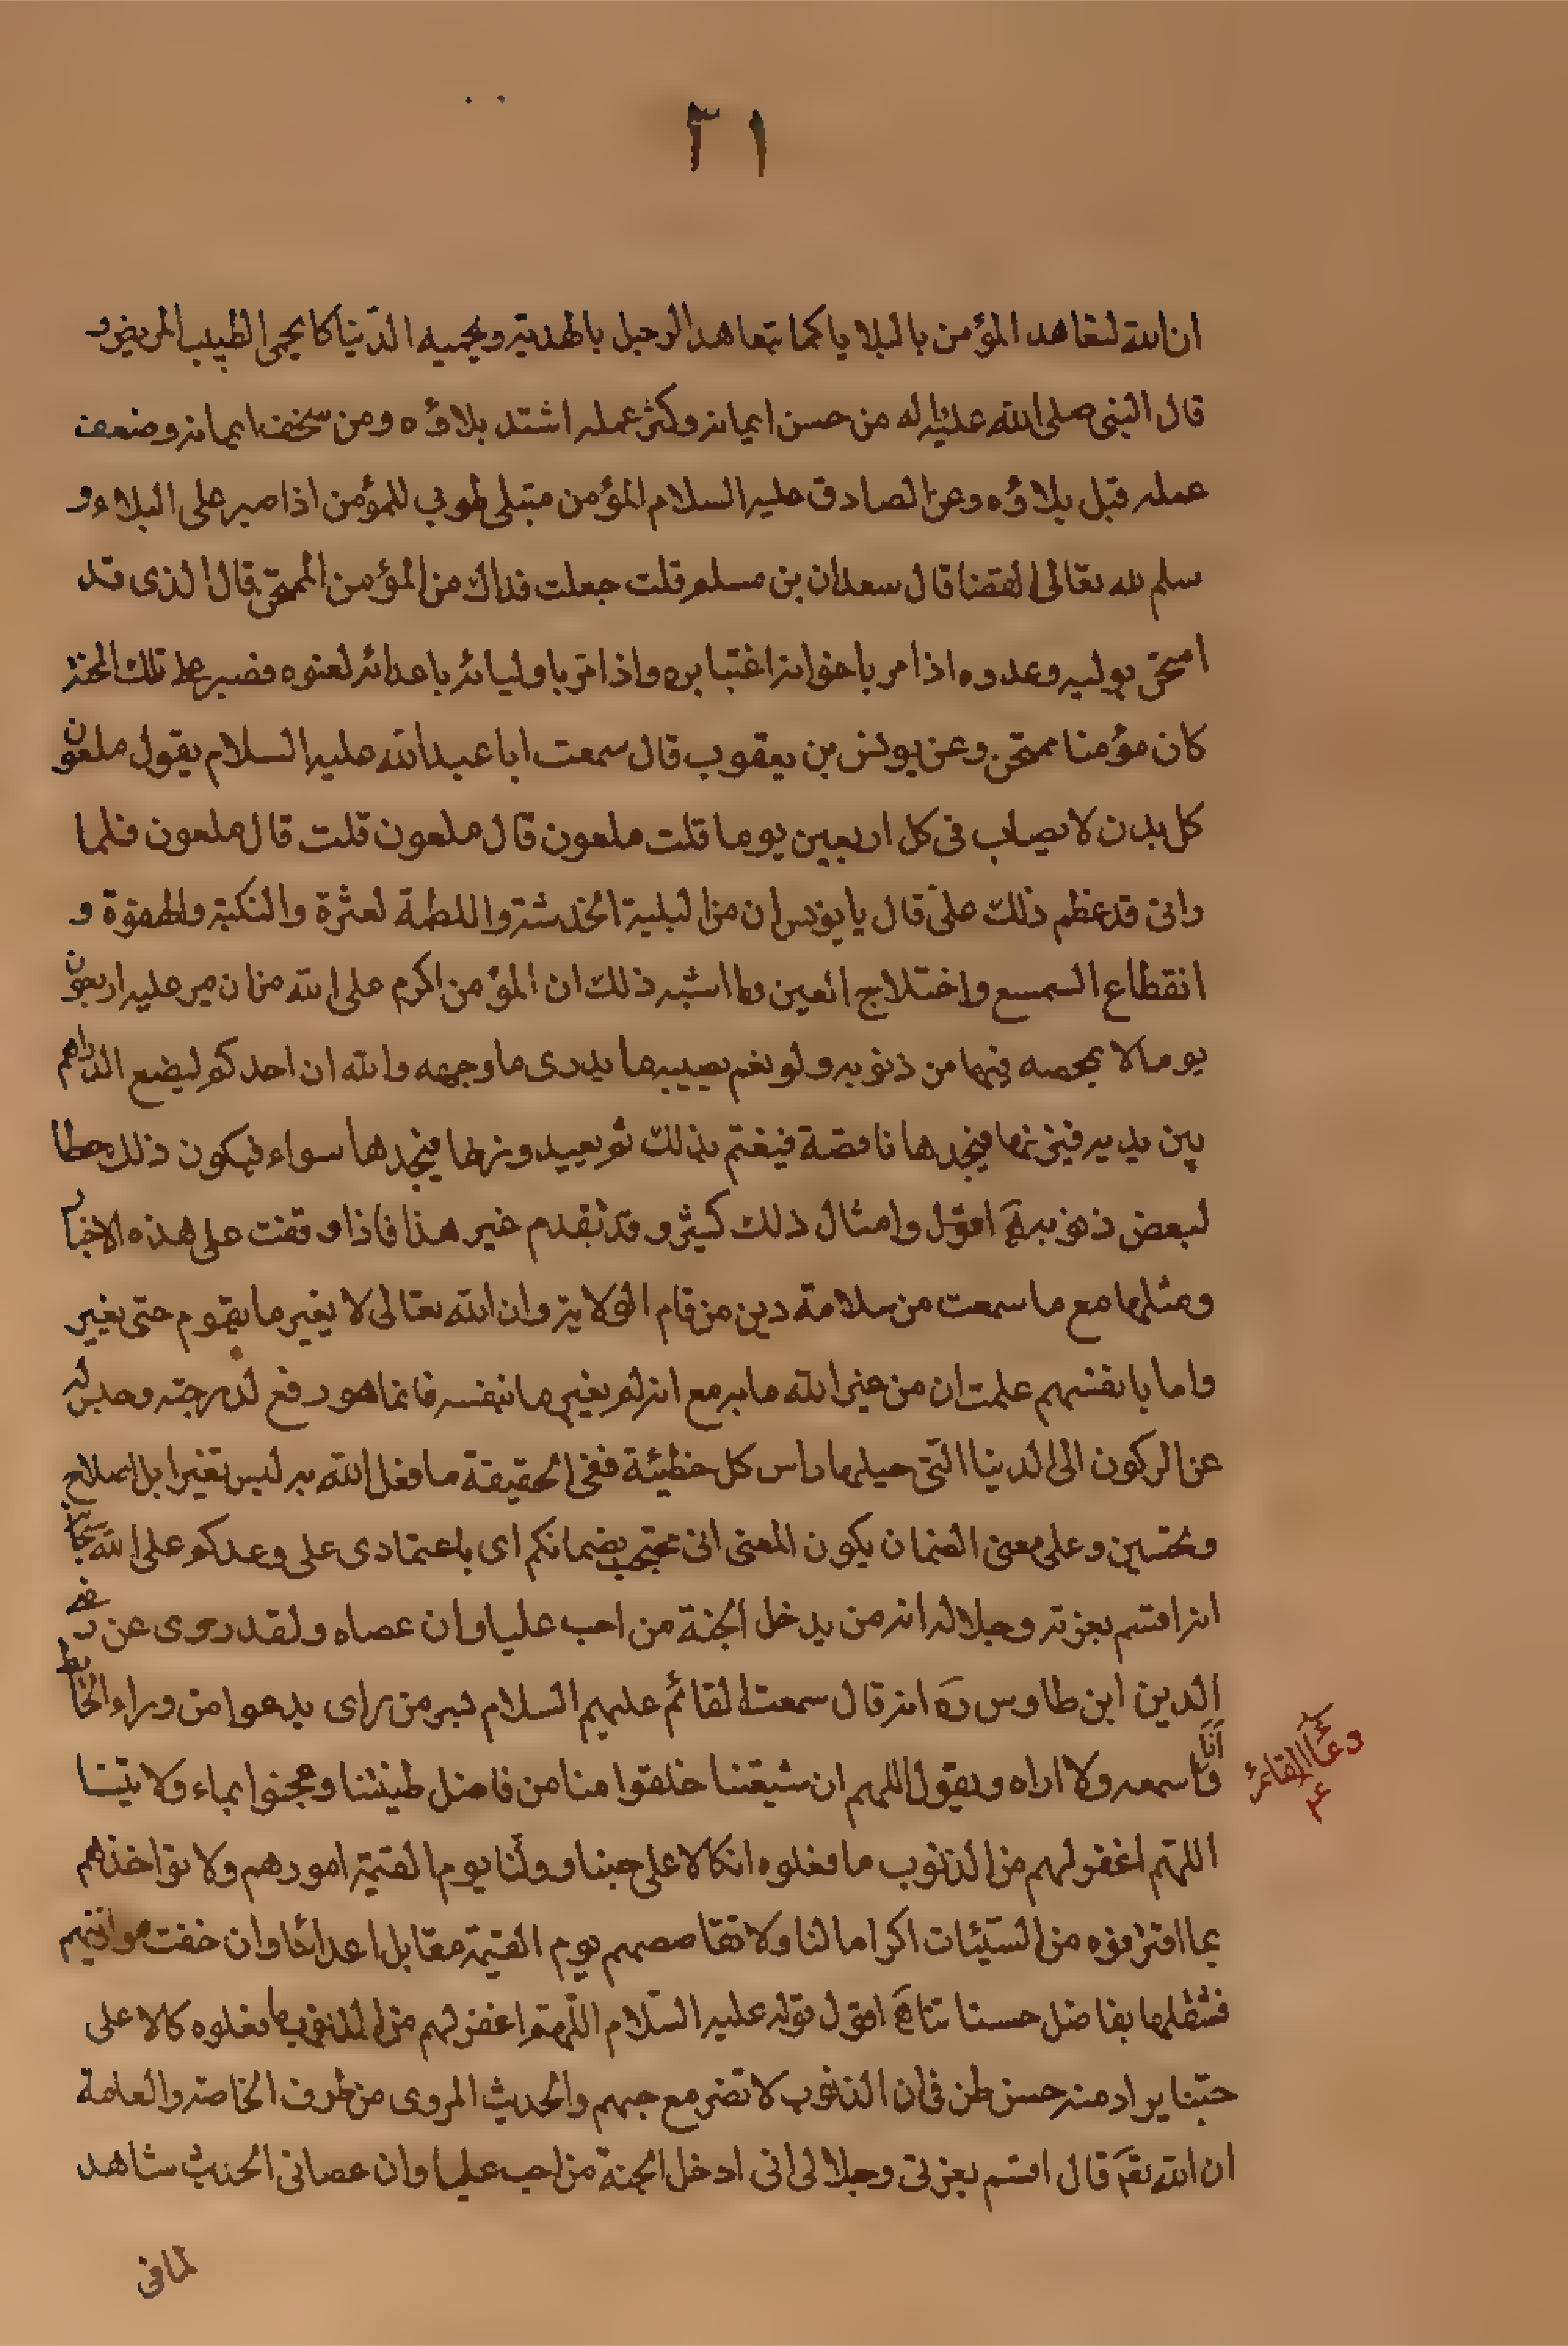 ٣١
ان الله لتعاهد المؤمن بالبلايا كما يتعاهد الرجل بالهدية ويحميه الدنيا كما يحمى الطبيب المريض و
قال النبى صلى الله عليه واله من حسن ايمانه وكثر عمله اشتد بلاؤه ومن سخف ايمانه وضعف
عمله قبل بلاؤه وعن الصادق عليه السلام المؤمن مبتلى طوبى للمؤمن اذا صبر على البلاء و
سلم لله تعالى القضا قال سعدان بن مسلم قلت جعلت فداك من المؤمن الممتحن قال الذى قد
امتحن بوليه وعدوه اذا مر باخوانه اغتابره واذا مر باوليائه باعدائه لعنوه فصبر على تلك المحنة
كان مؤمنا ممتحن وعن يونس بن يعقوب قال سمعت ابا عبد الله عليه السلام يقول ملعون
كل بدن لا يصاب فى كل اربعين يوما قلت ملعون قال ملعون قلت قال ملعون فلما
رانى قد عظم ذلك على قال يا يونس ان من البلية الخدشة واللطمة لعثرة والنكبة والهفوة و
انقطاع السمسع واختلاج العين وما اشبه ذلك ان المؤمن اكرم على الله من ان يمر عليه اربعون
يوما لا يمحصه فيها من ذنوبه ولو بغم يصيبه ما يدرى ما وجهه والله ان احدكم ليضع الدراهم
بين يديه فيزنها فيجدها ناقصة فيغتم بذلك ثم يعيد وزنها فيجدها سواء فيكون ذلك حطا
لبعض ذنوبه اقول وامثال ذلك كثير وقد تقدم غير هذا فاذا وقفت على هذه الاخبار
ومثلها مع ما سمعت من سلامة دين من قام الولاية وان الله تعالى لا يغير ما بقوم حتى يغير
واما بانفسهم علمت ان من غير الله ما به مع انه لم يغير ما بنفسه فانما هو رفع لدرجته وحبس له
عن الركون الى الدنيا التى حبها راس كل خطيئة ففى الحقيقة ما فعل الله به ليس تغيرا بل اصلاح
وتحسين وعلى معنى الضمان يكون المعنى انى محتجب بضمانكم اى باعتمادى على وعدكم على الله سبحانه
انه اقسم بعزته وجلاله انه من يدخل الجنة من احب عليا وان عصاه ولقد روى عن رضى
الدين ابن طاوس ره انه قال سمعت القائم عليهم السلام بسر من راى يدعوا من وراء الحائط
وانا اسمعه ولا اراه ويقول اللهم ان شيعتنا خلقوا منا من فاضل طينتنا وعجنوا بماء ولايتنا
دعاء القائم ع
اللهم اغفر لهم من الذنوب ما فعلوه اتكالا على حبنا وولنا يوم القيمة امورهم ولا تواخذهم
بما اقترفوه من السيئات اكراما لنا ولا تقاصصهم يوم القيمة مقابل اعدائنا وان خفت موازينهم
فثقلها بفاضل حسناتنا اقول قوله عليه السلام اللهم اغفر لهم من الذنوب ما فعلوه كالا على
حبنا يراد منه حسن ظن فى ان الذنوب لا تضر مع حبهم والحديث المروى من طرف الخاصة والعامة
ان الله تعَ قال اقسم بعزتى وجلالى انى ادخل الجنة من احب عليا وان عصانى الحديث شاهد
لما فى